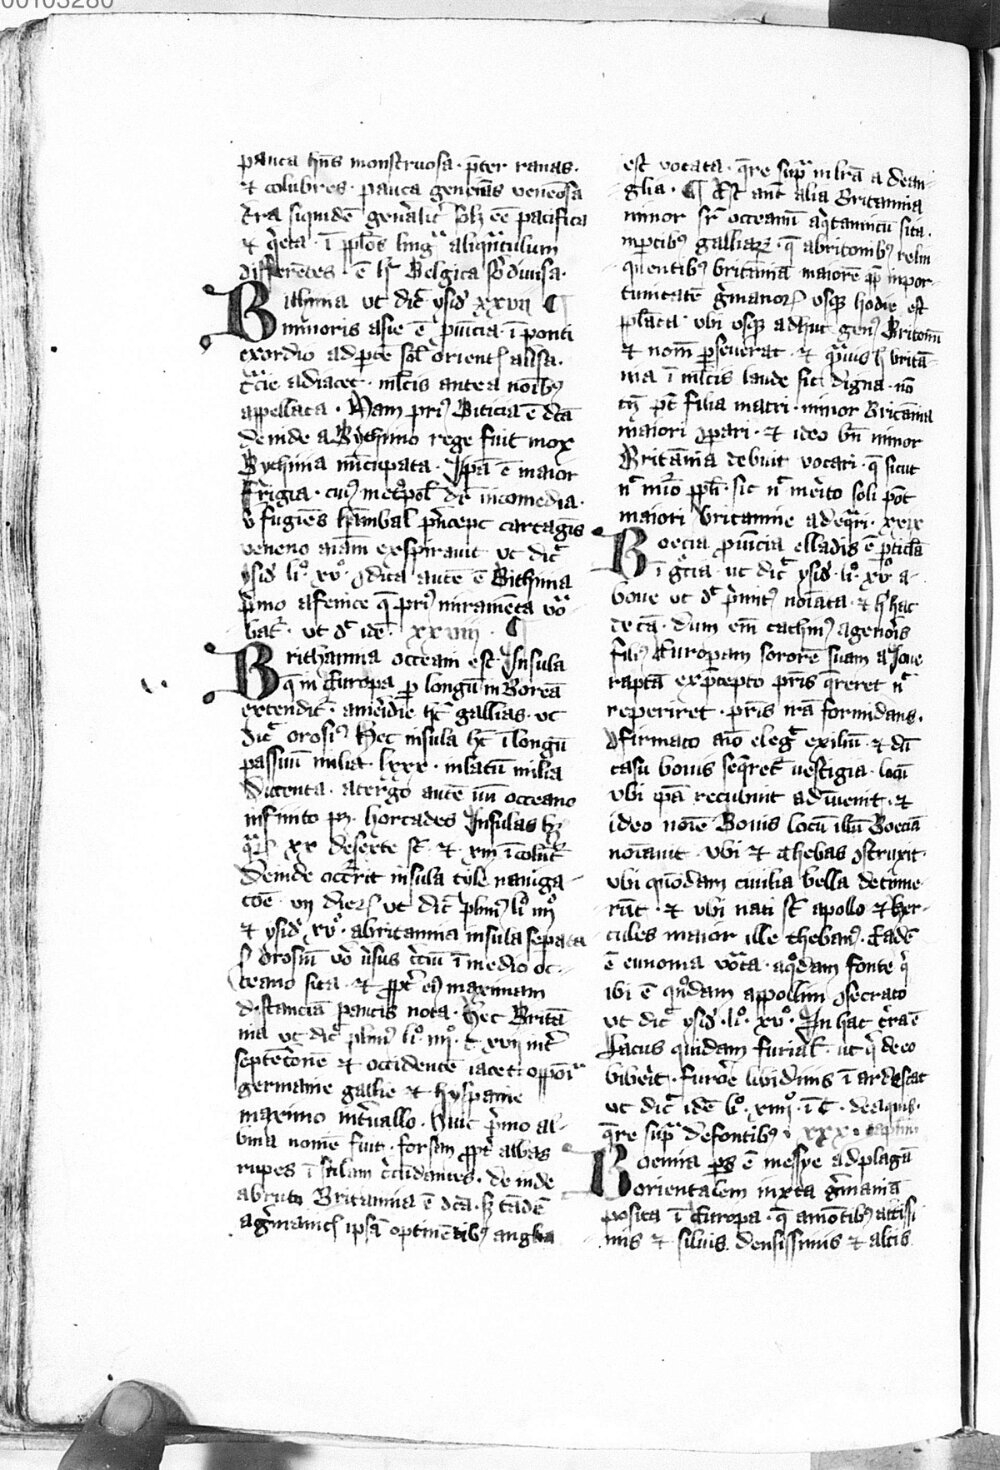 00103280
pauca hn̄s monstruosa · p̄ter ranas ·
⁊ colubres · pauca generās venenosa
t̄ra siquidē gen̄alit͛ solȝ eē pacifica
⁊ q̄eta · ī pp̄l̓os ling͛ aliqn̄tulum
differētes · ē Belgica divisa ·
Bithinia ut dic͛ ysid͛ xxvii ¶
minoris asie ē ꝓuīcia ī ponti
exordio ad p̄te sol̓ orient͛
t̄cie adiacet · ml̓tis antea noībꝰ
appellata · Nam priꝰ Biticia ē dc̄a
deinde a Bythinio rege fuit mox
Bythinia nūcupata · Ip̄a ē maior
frigia · cuiꝰ met͛opol̓ dē incomedia ·
v̓ fugiēs hanibal p̄nceps cartagis
veneno aīam exspirauit ut dic͛
ysid͛ li͛ xv͛ · dicta autē ē Bithinia
p̓mo a fenice q̄ priꝰ
bat͛ · ut d͛ idē · xxviii · ¶
Brithannia occeani est Insula
q̄ in Europa p longū in Boreā
extendit͛ · a meridie h̄t gallias · ut
dic͛ orosiꝰ Hec insula h̄t ī longū
passuū milia lxxx · in latū milia
ducenta · a tergo autē vn̄ occeano
infinito pȝ · horcades Insulas hȝ
q̄rȝ xx deserte s̄t · ⁊ xiii īcolūt͛
Deinde occ͛rit insula tyle nauiga ·
cōe · vii dierȝ ut dic͛ pliniꝰ li͛ iiii͛
⁊ ysid͛ xv͛ · a britannia insula sep̄ata
s̄ orosiū v͛o v̓sus t̄ciū ī medio oc ·
ceano sita · ⁊ ꝓpt͛ eiꝰ maximam
distanciā paucis nota · Hec Britā
nia ut dic͛ pliniꝰ li͛ iiii͛ · c̄ xvii int͛
septēt͛onē ⁊ occidentē iacet oppōi͛
germanie gallie ⁊ hyspanie
maximo int͛uallo · Huic p̓mo al ·
bina nomē fuit · forsan ꝓpt͛ albas
rupes · deinde
a bruto Britannia ē dc̄a · sȝ tādē
a germanis ipsā optinētibꝰ anglia
est vocata · q̄re sup͛ in lr̄a a de an ·
glia · ¶ Est aut͛ alia Britannia
minor sr͛ occeanū aq̄tanicū sita ·
in p̄tibꝰ galliarȝ · q̄ a britonibꝰ relin
quentibꝰ britāniā maiorē ꝓp͛ inpor ·
tunitatē germanorȝ usqȝ hodie est
pp̄l̓ata · ubi usqȝ adhuc genꝰ Britonū
⁊ nomē p̱seuerat · ⁊ q̄uis h̄ britā ·
nia ī ml̓tis laude sit digna · nō
tn̄ pt̄ filia matri · minor Britānia
maiori ꝯpari · ⁊ ideo bn̄ minor
Britānia debuit vocari · q̄ sicut
sic n͛ merito soli pōt
maiori britannie adeq̄ri · xxix
Boecia ꝓuīcia elladis ē p̄ticl̓a
ī gr̄cia · ut dic͛ ysid͛ · li͛ xv͛ a ·
boue ut d͛ p̓mit͛ noīata · ⁊ h̄ hac
de cā · Dum em̄ cathmꝰ agenoris
filiꝰ Europam sororē suam a Ioue
raptā ex p̄cepto p̄ris q̄reret n͛
reperiret · p̄ris irā formidans ·
ꝯfirmato aīo eleg͛ exiliū · ⁊ dū
casu bouis seq̄ret͛ uestigia · locū
ubi ip̄a recubuit adīuenit · ⁊
ideo noīe Bouis locū illū Boeciā
noīauit · ubi ⁊ thebas ꝯstruxit ·
ubi quōdam ciuilia bella detone ·
rūt · ⁊ ubi nati s̄t apollo ⁊ her ·
cules maior ille thebanꝰ · Eadē
ē eunomia vōata · a q̄dam fonte q̓
ibi ē qn̄dam appollini ꝯsecrato
ut dic͛ ysid͛ · li͛ · xv͛ · In hac t̄ra ē
Lacus quidam furial͛ · ut q̓ de eo
biberit · furore libidinis ī ardescat
ut dic͛ idē li͛ · xiiii͛ · ī c̄ · de aquis ·
q̄re sup͛ de fontibꝰ · xxx · capl̓m
Boemia p̱s ē messye ad plagā
orientalem iuxta germaniā
posita ī Europa · q̄ a mōtibꝰ altissi
mis ⁊ siluis densissimis ⁊ altis